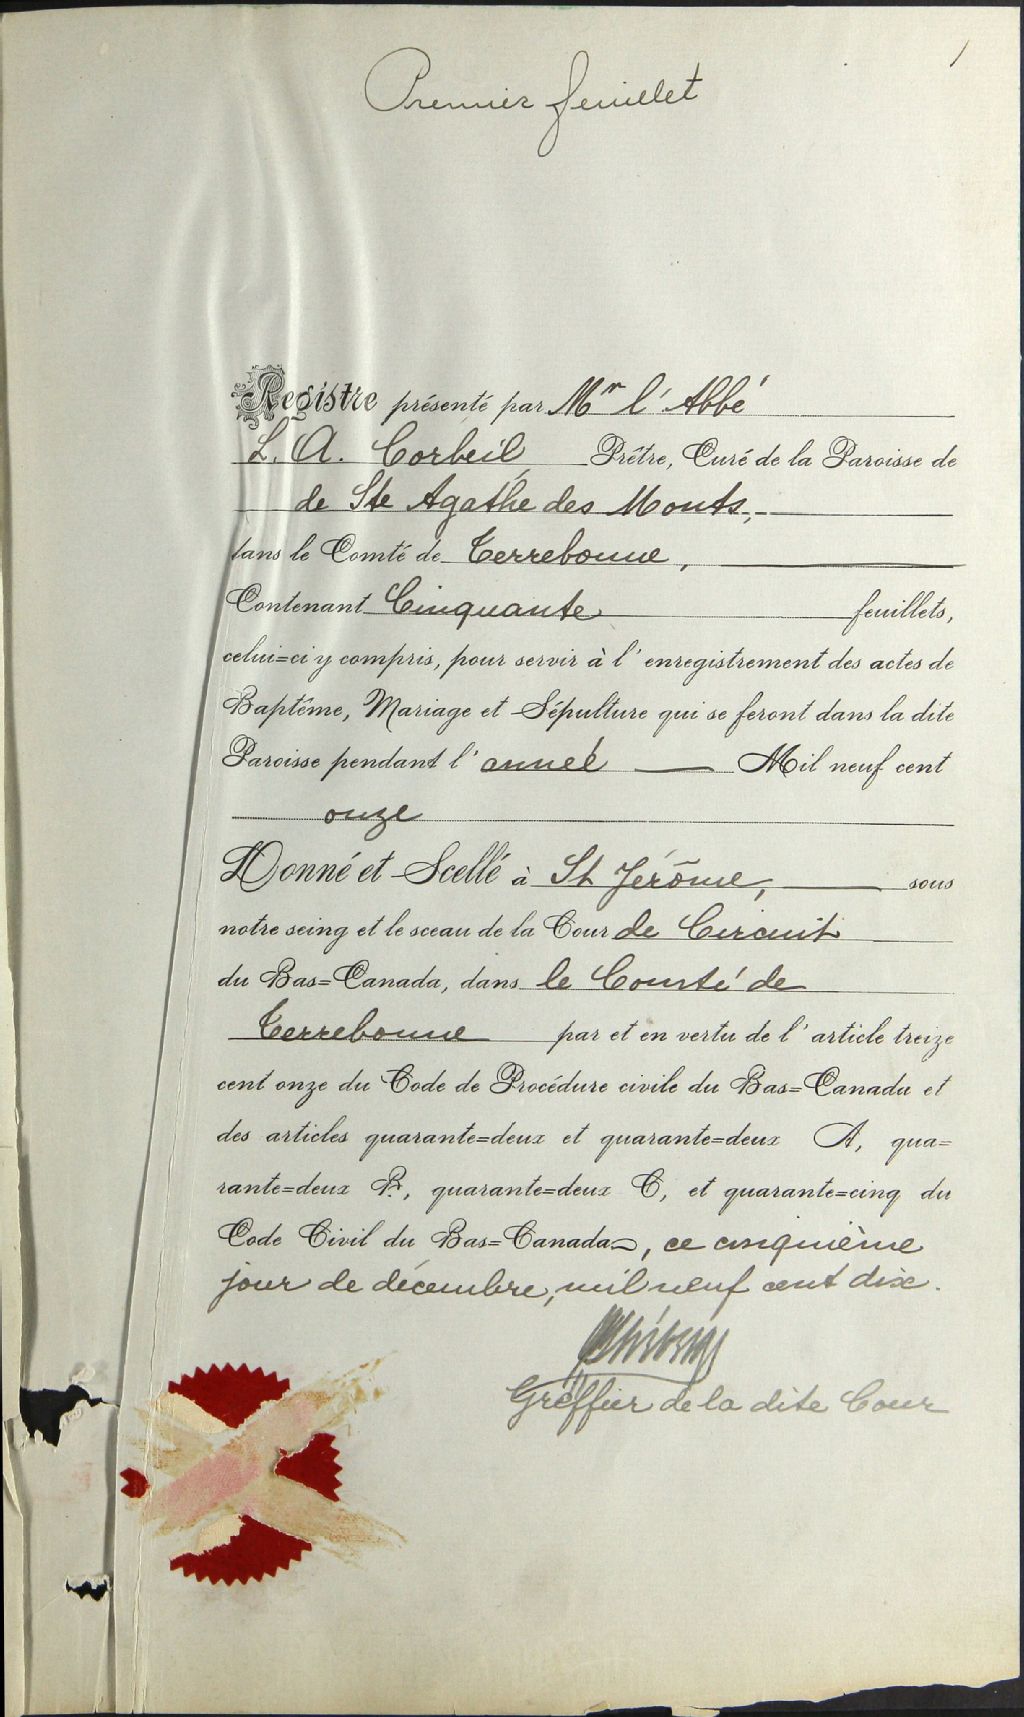 1
Premier feuillet
Registre présenté par Mr l'Abbé
L. A. Corbeil, Prêtre, Curé de la Paroisse de
de Ste Agathe des Monts,
dans le Comté de Terrebonne,
Contenant Cinquante feuillets,
celui=ci y compris, pour servir à l'enregistrement des actes de
Baptême, Mariage et Sépulture qui se feront dans la dite
Paroisse pendant l'année Mil neuf cent
onze
Donné et Scellé à St Jérôme, sous
notre seing et le sceau de la Cour de Circuit
du Bas=Canada, dans le Comté de
Terrebonne par et en vertu de l'article treize
cent onze du Code de Procédure civile du Bas=Canada et
des articles quarante=deux et quarante=deux A, qua=
rante=deux B, quarante=deux C, et quarante=cinq du
Code Civil du Bas=Canada, ce cinquième
jour de décembre, mil neuf cent dix.
Greffier de la dite Cour